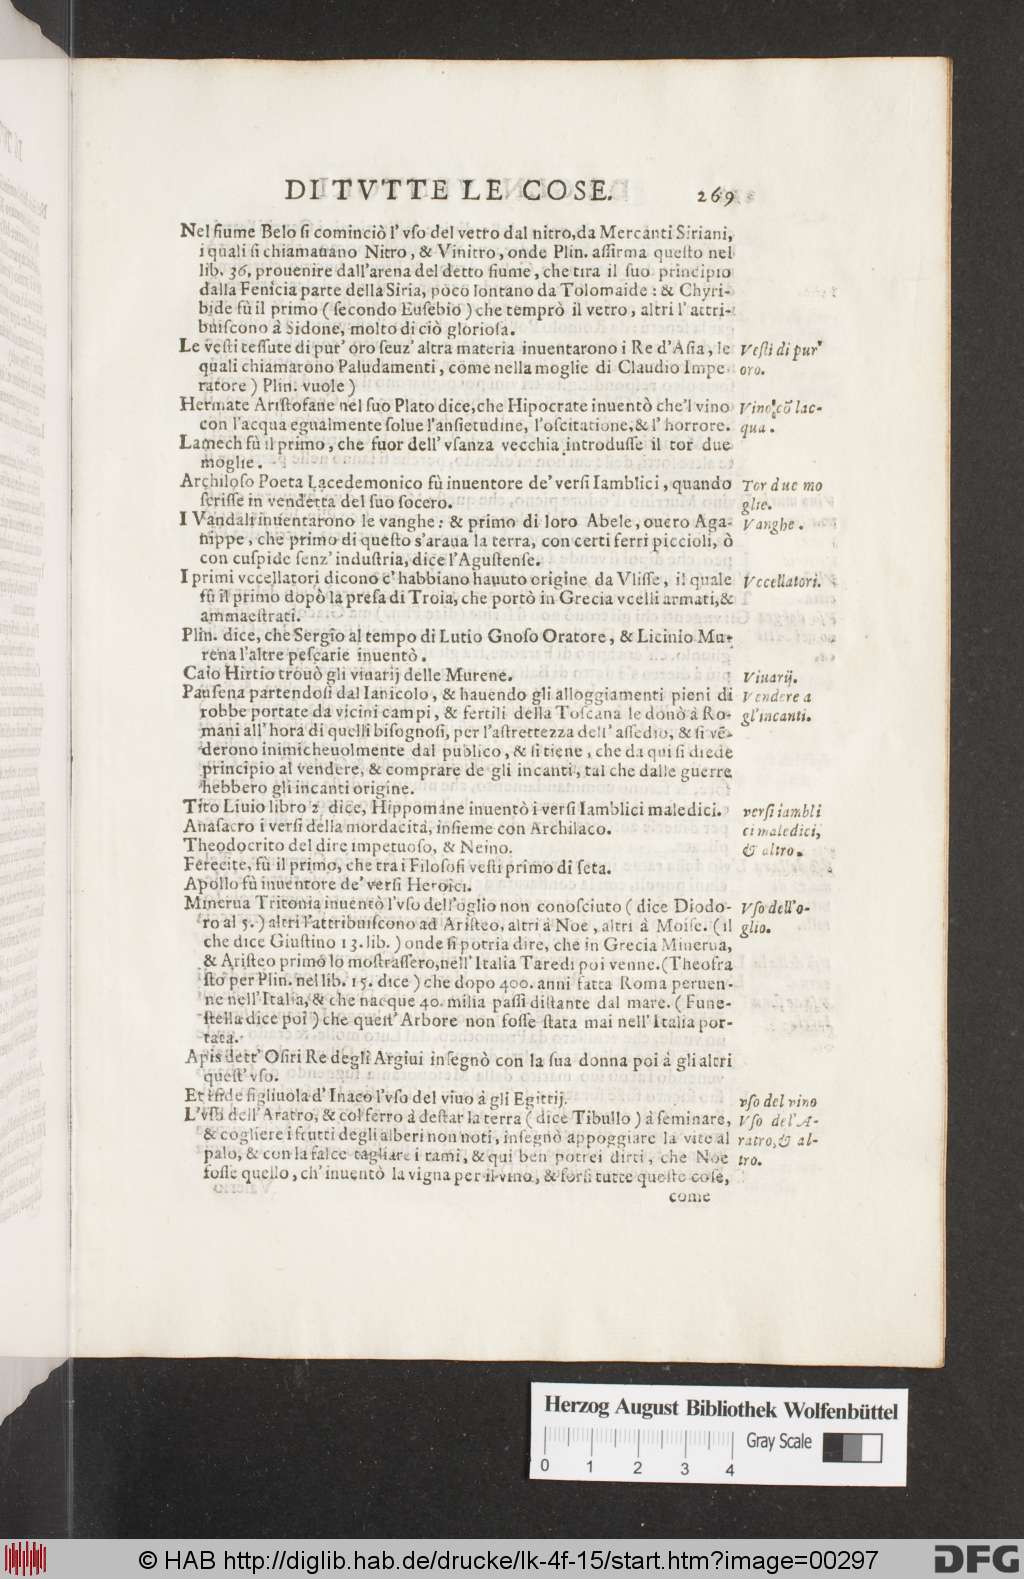 DI TVTTE LE COSE. 269
Nel fiume Belo ſi cominciò l'vſo del vetro dal nitro, da Mercanti Siriani,
i quali ſi chiamauano Nitro, & Vinitro, onde Plin. affirma queſto nel
lib. 36, prouenire dall'arena del detto fiume, che tira il ſuo principio
dalla Fenicia parte della Siria, poco lontano da Tolomaide: & Chyri-
bide fù il primo (ſecondo Euſebio) che temprò il vetro, altri l'attri-
buiſcono à Sidone, molto di ciò glorioſa.
Le veſti teſſute di pur' oro ſenz' altra materia inuentarono i Re d'Aſia, le
Veſti di pur'
quali chiamarono Paludamenti, come nella moglie di Claudio Impe-
oro.
ratore) Plin. vuole)
Hermate Ariſtofane nel ſuo Plato dice, che Hipocrate inuentò che'l vino
Vino cō lac-
con l'acqua egualmente ſolue l'anſietudine, l'oſcitatione, & l'horrore.
qua.
Lamech fù il primo, che fuor dell'vſanza vecchia introduſſe il tor due
moglie.
Archiloſo Poeta Lacedemonico fù inuentore de' verſi Iamblici, quando
Tor due mo
ſcriſſe in vendetta del ſuo ſocero.
glie.
I Vandali inuentarono le vanghe: & primo di loro Abele, ouero Aga-
Vanghe.
nippe, che primo di queſto s'araua la terra, con certi ferri piccioli, ò
con cuſpide ſenz' induſtria, dice l'Aguſtenſe.
I primi vccellatori dicono c' habbiano hauuto origine da Vliſſe, il quale
Vccellatori.
fù il primo dopò la preſa di Troia, che portò in Grecia vcelli armati, &
ammaeſtrati.
Plin. dice, che Sergio al tempo di Lutio Gnoſo Oratore, & Licinio Mu-
rena l'altre peſcarie inuentò.
Caio Hirtio trouò gli viuarij delle Murene.
Viuarij.
Pauſena partendoſi dal Ianicolo, & hauendo gli alloggiamenti pieni di
Vendere a
robbe portate da vicini campi, & fertili della Toſcana le donò à Ro-
gl'incanti.
mani all'hora di quelli biſognoſi, per l'aſtrettezza dell'aſſedio, & ſi vē-
derono inimicheuolmente dal publico, & ſi tiene, che da qui ſi diede
principio al vendere, & comprare de gli incanti, tal che dalle guerre
hebbero gli incanti origine.
Tito Liuio libro 2. dice, Hippomane inuentò i verſi Iamblici maledici.
verſi iambli
Anaſacro i verſi della mordacità, inſieme con Archilaco.
ci maledici,
Theodocrito del dire impetuoſo, & Neino.
& altro.
Ferecite, fù il primo, che tra i Filoſofi veſti primo di ſeta.
Apollo fù inuentore de' verſi Heroici.
Minerua Tritonia inuentò l'vſo dell'oglio non conoſciuto (dice Diodo-
Vſo dell'o-
ro al 5.) altri l'attribuiſcono ad Ariſteo, altri à Noe, altri à Moiſe. (il
glio.
che dice Giuſtino 13. lib.) onde ſi potria dire, che in Grecia Minerua,
& Ariſteo primo lo moſtraſſero, nell'Italia Taredi poi venne. (Theofra
ſto per Plin. nel lib. 15. dice) che dopo 400. anni fatta Roma peruen-
ne nell'Italia, & che nacque 40. milia paſſi diſtante dal mare. (Fune-
ſtella dice poi) che queſt'Arbore non foſſe ſtata mai nell'Italia por-
tata.
Apis dett' Oſiri Re degli Argiui inſegnò con la ſua donna poi à gli altri
queſt'vſo.
Et Iſide figliuola d'Inaco l'vſo del viuo à gli Egittij.
vſo del vino
L'vſo dell'Aratro, & col ferro à deſtar la terra (dice Tibullo) à ſeminare,
Vſo del'A-
& cogliere i frutti degli alberi non noti, inſegnò appoggiare la vite al
ratro, & al-
palo, & con la falce tagliare i rami, & qui ben potrei dirti, che Noe
tro.
foſſe quello, ch' inuentò la vigna per il vino, & forſi tutte queſte coſe,
come
Herzog August Bibliothek Wolfenbüttel
Gray Scale
0 1 2 3 4
© HAB http://diglib.hab.de/drucke/lk-4f-15/start.htm?image=00297
DFG